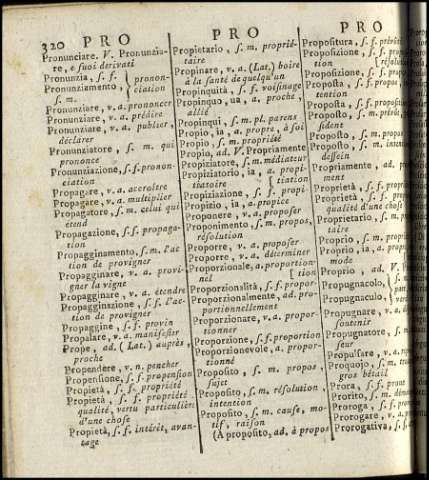 320 PRO PRO PRO
Pronunciare. V. Pronunzia-
re, e suoi derivati
Pronunzia, s. f. } pronon-
Pronunziamento, } ciation
s. m.
Pronunziare, v. a. prononcer
Pronunziare, v. a. prédire
Pronunziare, v. a. publier,
déclarer
Pronunziatore, s. m. qui
prononce
Pronunziazione, s. f. pronon-
ciation
Propagare, v. a. accroître
Propagare, v. a. multiplier
Propagatore, s. m. celui qui
étend
Propagazione, s. f. propaga-
tion
Propagginamento, s. m. l'ac
tion de provigner
Propagginare, v. a. provi-
gner la vigne
Propagginare, v. a. étendre
Propagginazione, s. f. l'ac-
tion de provigner
Propaggine, s. f. provin
Propalare, v. a. manifester
Prope, ad. (Lat.) auprès,
proche
Propendere, v. n. pencher
Propensione, s. f. propension
Propietà, s. f. propriété
Propietà, s. f. propriété
qualité, vertu particulière
d'une chose
Propietà, s. f. intérêt, avan-
tage
Propietario, s. m. proprié-
taire
Propinare, v. a. (Lat.) boire
à la santé de quelqu'un
Propinquità, s. f. voisinage
Propinquo, ua, a. proche,
allié
Propinqui, s. m. pl. parens
Propio, ia, a. propre, à soi
Propio, s. m. propriété
Propio, ad. V. Propriamente
Propiziatore, s. m. médiateur
Propiziatorio, ia, a. propi-
tiatoire [tiation
Propiziazione, s. f. propi-
Propizio, ia, a. propice
Proponere, v. a. proposer
Proponimento, s. m. propos,
résolution
Proporre, v. a. proposer
Proporre, v. a. déterminer
Proporzionale, a. proportion-
nel [tion
Proporzionalità, s. f. propor-
Proporzionalmente, ad. pro-
portionnellement
Proporzionare, v. a. propor-
tionner
Proporzione, s. f. proportion
Proporzionevole, a. propor-
tionné
Proposito, s. m. propos,
sujet
Proposito, s. m. résolution,
intention
Proposito, s. m. cause, mo-
tif, raison
(A proposito, ad. à propos
Propositura, s. f.
Proposizione, s. f.
tion
Proposizione, s. f.
Proposizione, s. f.
Proposta, s. f. propos
tention
Proposta, s. f. proposition
Proposto, s. m.
sident
Proposto, s. m. propos
Proposto, s. m.
dessein
Propriamente, ad.
ment
Proprietà, s. f.
Proprietà, s. f.
qualité d'une chose
Proprietario, s. m.
taire
Proprio, s. m.
Proprio, ia, a.
mode
Proprio, ad. V.
Propugnacolo,
Propugnaculo,
Propugnare, v. a.
soutenir
Propugnatore, s. m.
seur
Propulsare, v. a.
Proquojo, s. m.
gros bétail
Prora, s. f.
Prorito, s. m.
Proroga, s. f.
Prorogare, v. a.
Prorogativa, s. f.